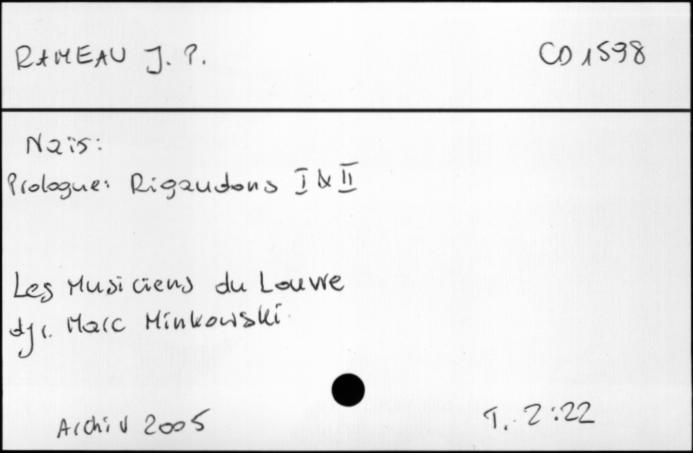 RAMEAU J. P.
CD 1598
Naïs:
Prologue: Rigaudons I & II
Les Musiciens du Louvre
djr. Marc Minkowski
Archiv 2005
T. 2:22